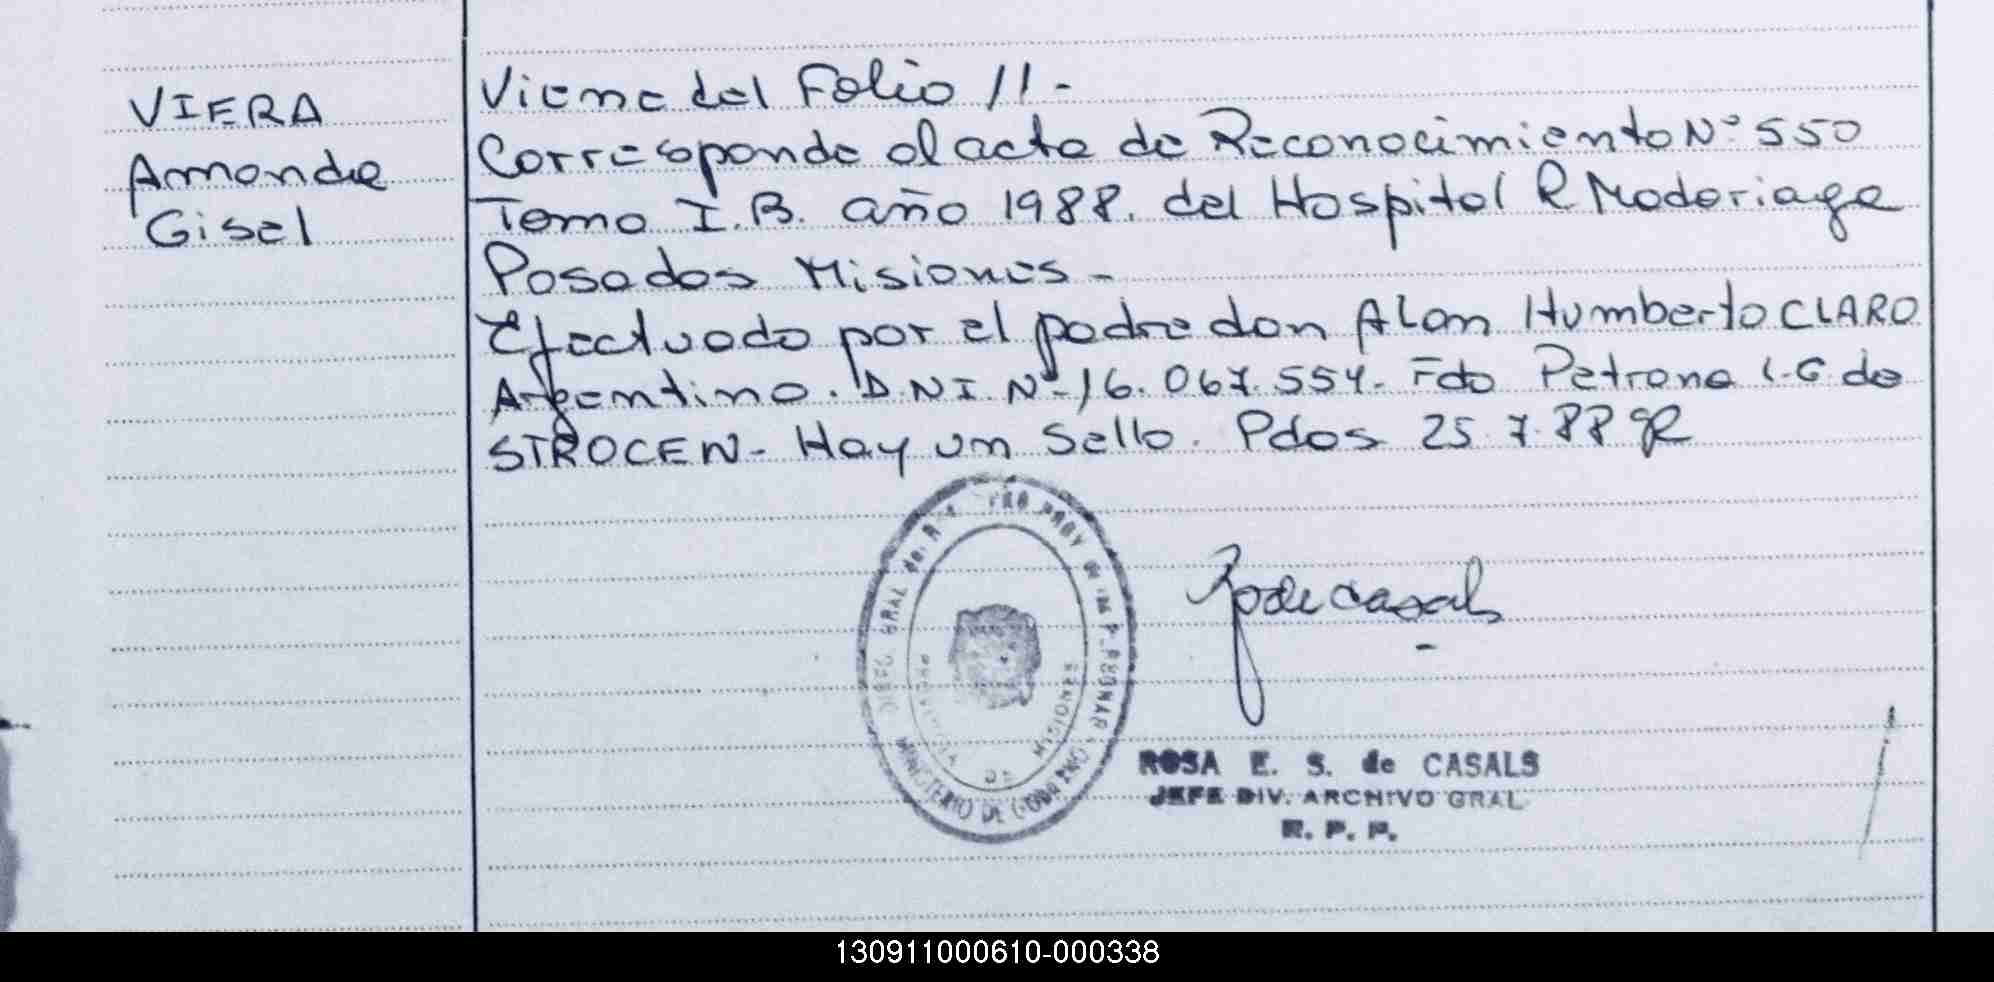 VIERA
Amanda
Gisel
Viene del Folio 11-
Corresponde al acta de Reconocimiento Nº 550
Tomo I.B. año 1988. del Hospital R Madariaga
Posadas Misiones-
Efectuado por el padre don Alan Humberto CLARO
Argentino. D.N.I. Nº 16.067.554- Fdo Petrona G. de
STROCEN- Hay un Sello. Pdas 25.7.88
MINISTERIO DE GOBIERNO
PROVINCIA DE MISIONES
de Casals
ROSA E. S. de CASALS
JEFE DIV. ARCHIVO GRAL
R. P. P.
130911000610-000338